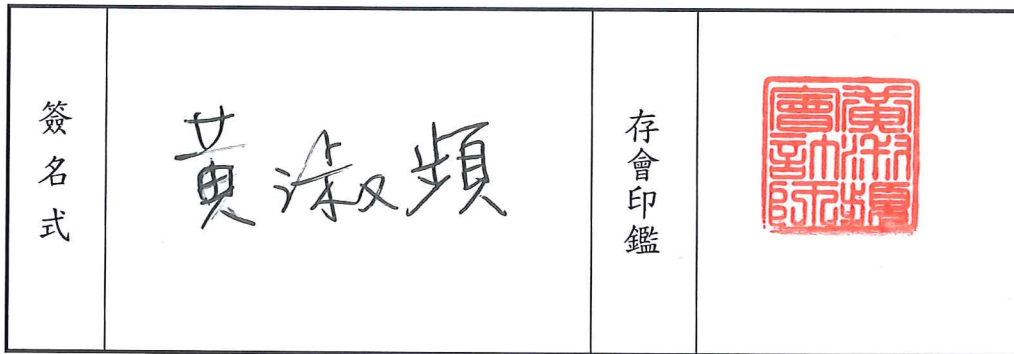 簽名式
黃淑頻
存會印鑑
黃淑頻會計師